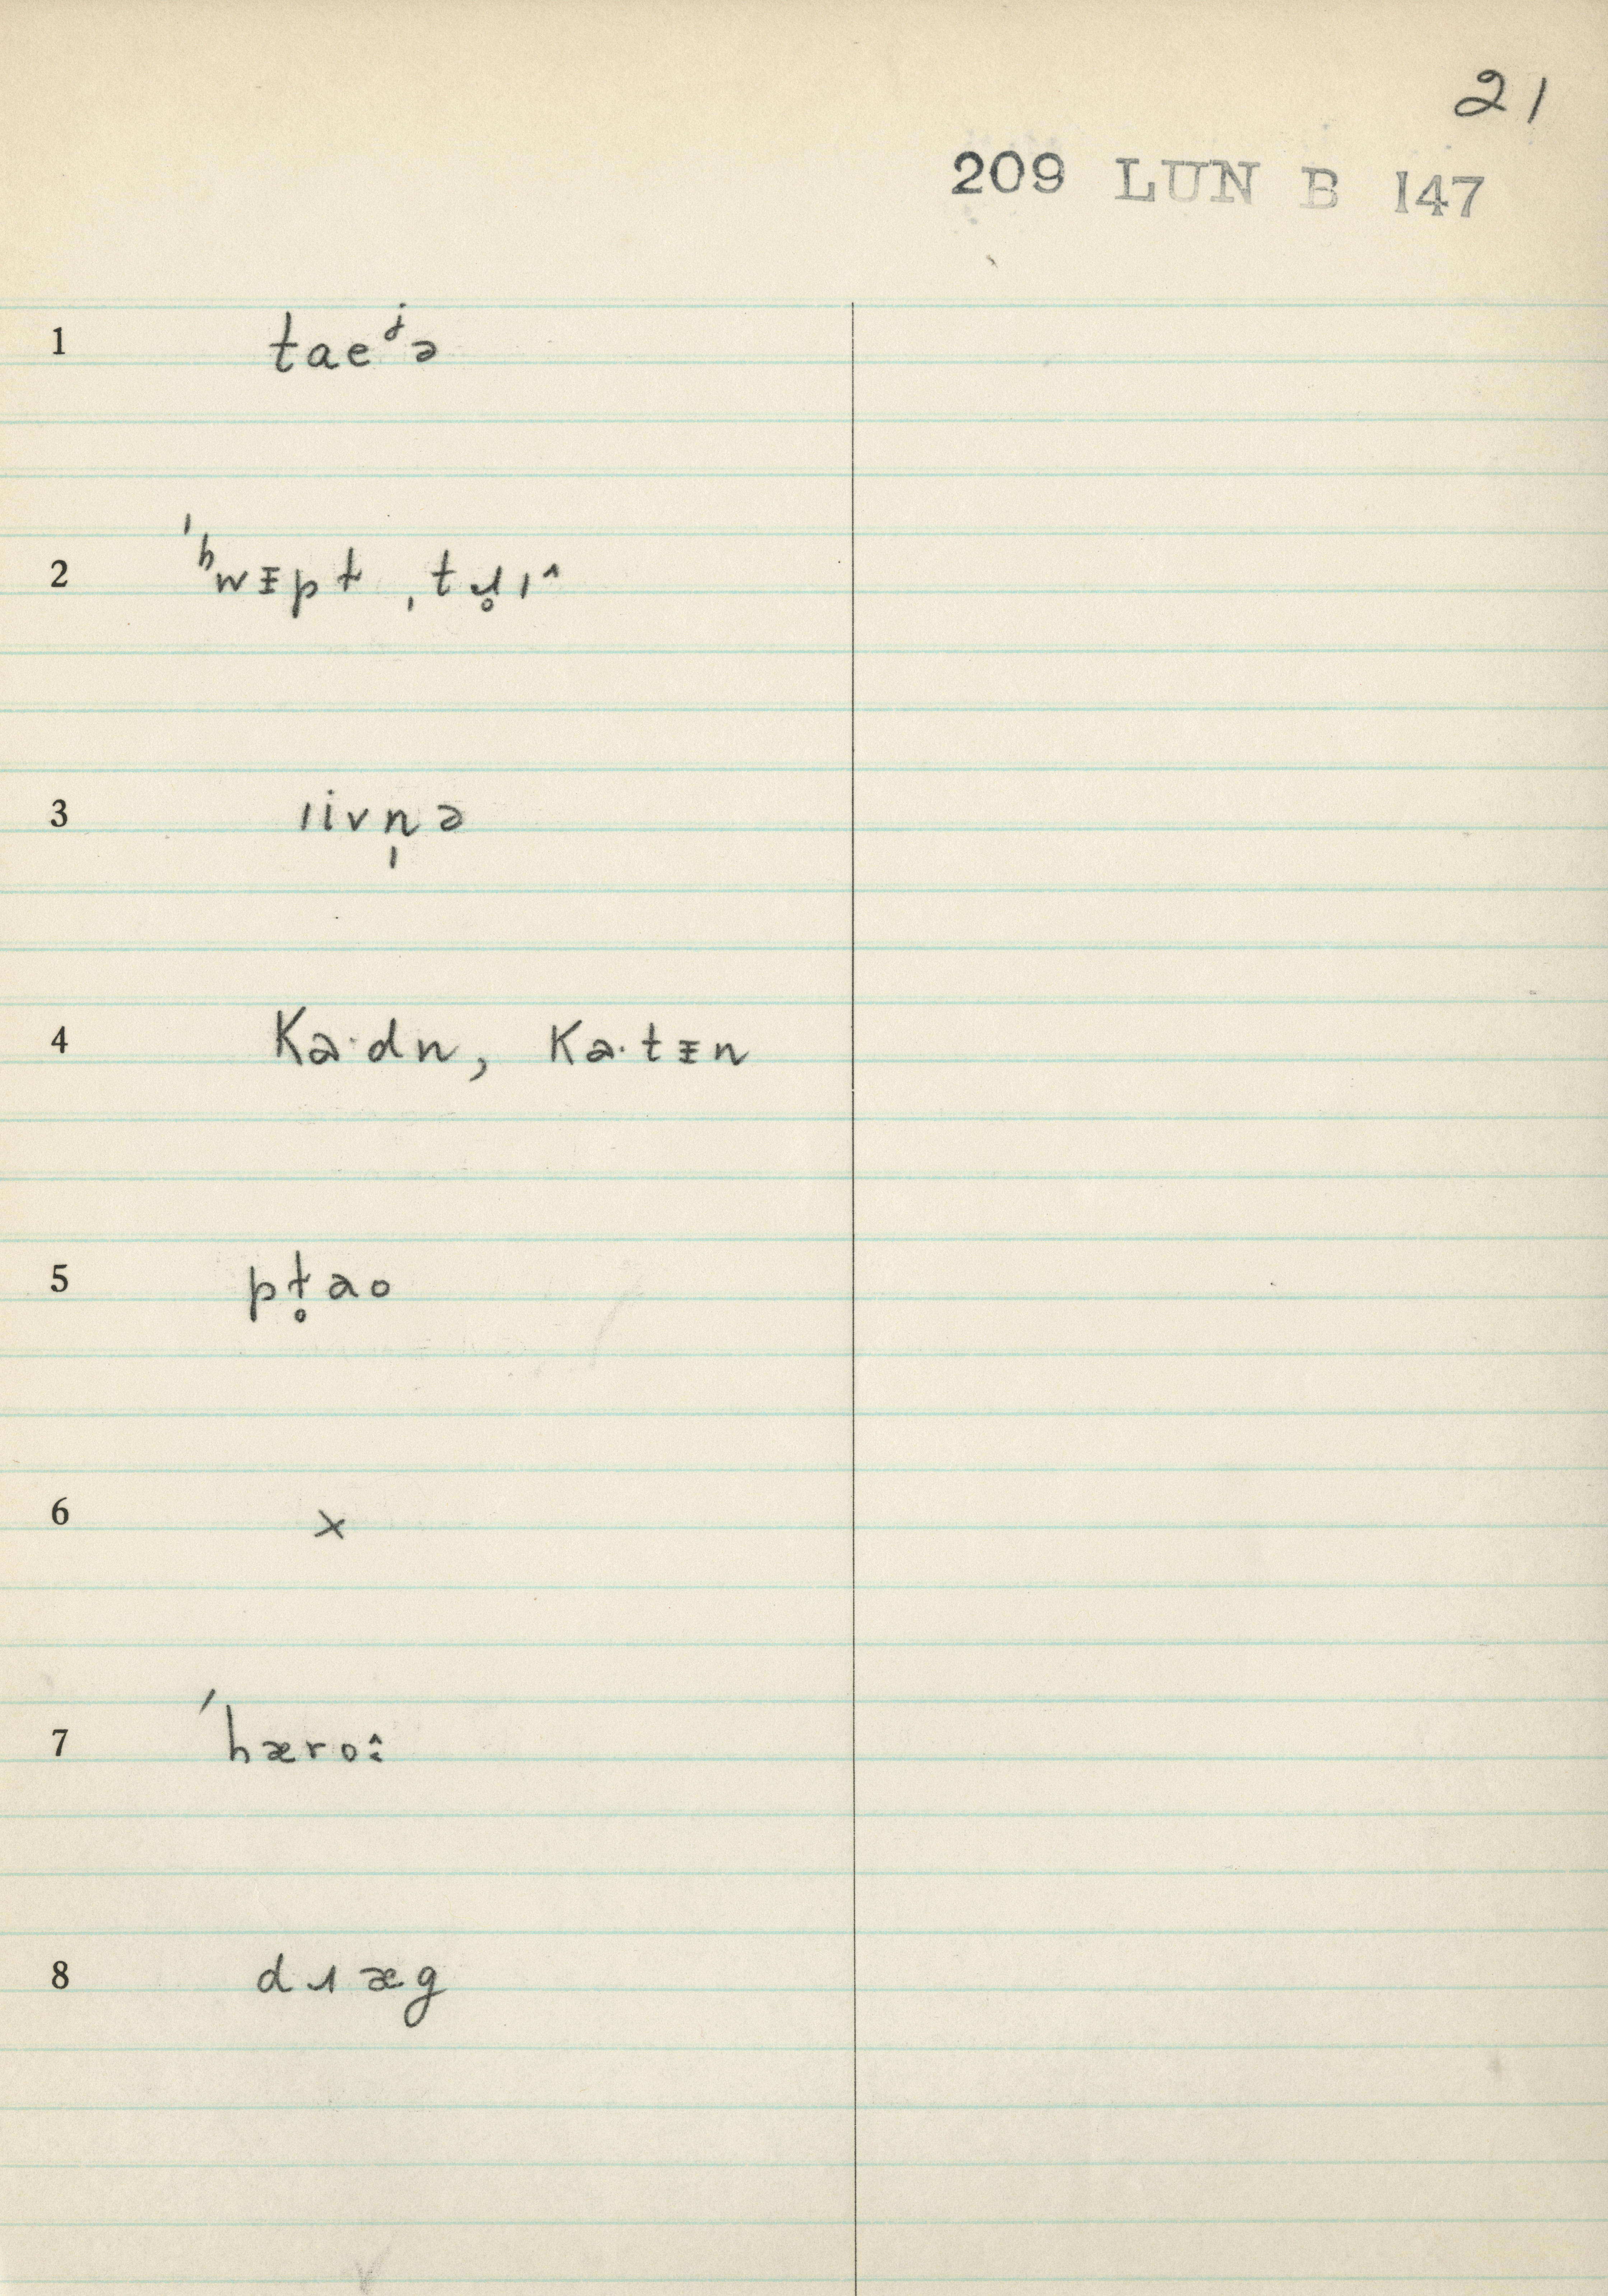 21
209 LUN B 147
1 taeʲə
2 ˈʰwᵻpt ˌtɹ̥ɪ˄
3 ɪivn̩ə
4 Ka·dn, Ka·tᵻn
5 pɫ̥ao
6 x
7 ˈhæroː˄
8 dɹæg